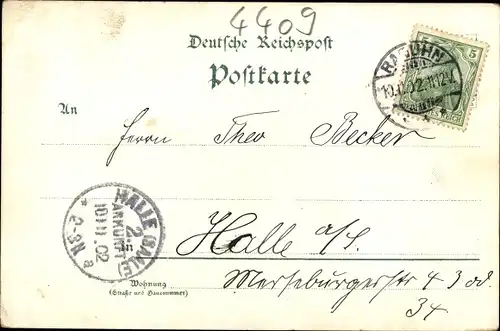 4409
Deutsche Reichspost
Postkarte
RAGUHN
10.11.02.11-12V.
5
An
Herrn Theo Becker
HALLE (SAALE)
2
ANKUNFT
10.11.02
2-3N
a
in Halle a/S.
Merseburgerstr 43 od.
34
Wohnung
(Straße und Hausnummer)